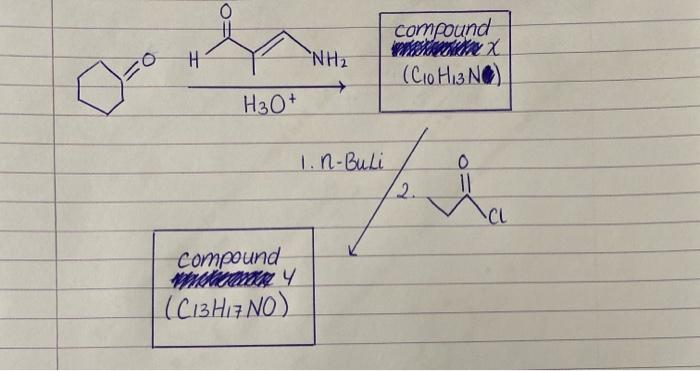 O
H
O
NH₂
H3O+
compound
X
(C10H13N)
1. n-BuLi
2.
O
Cl
compound
Y
(C13H17NO)